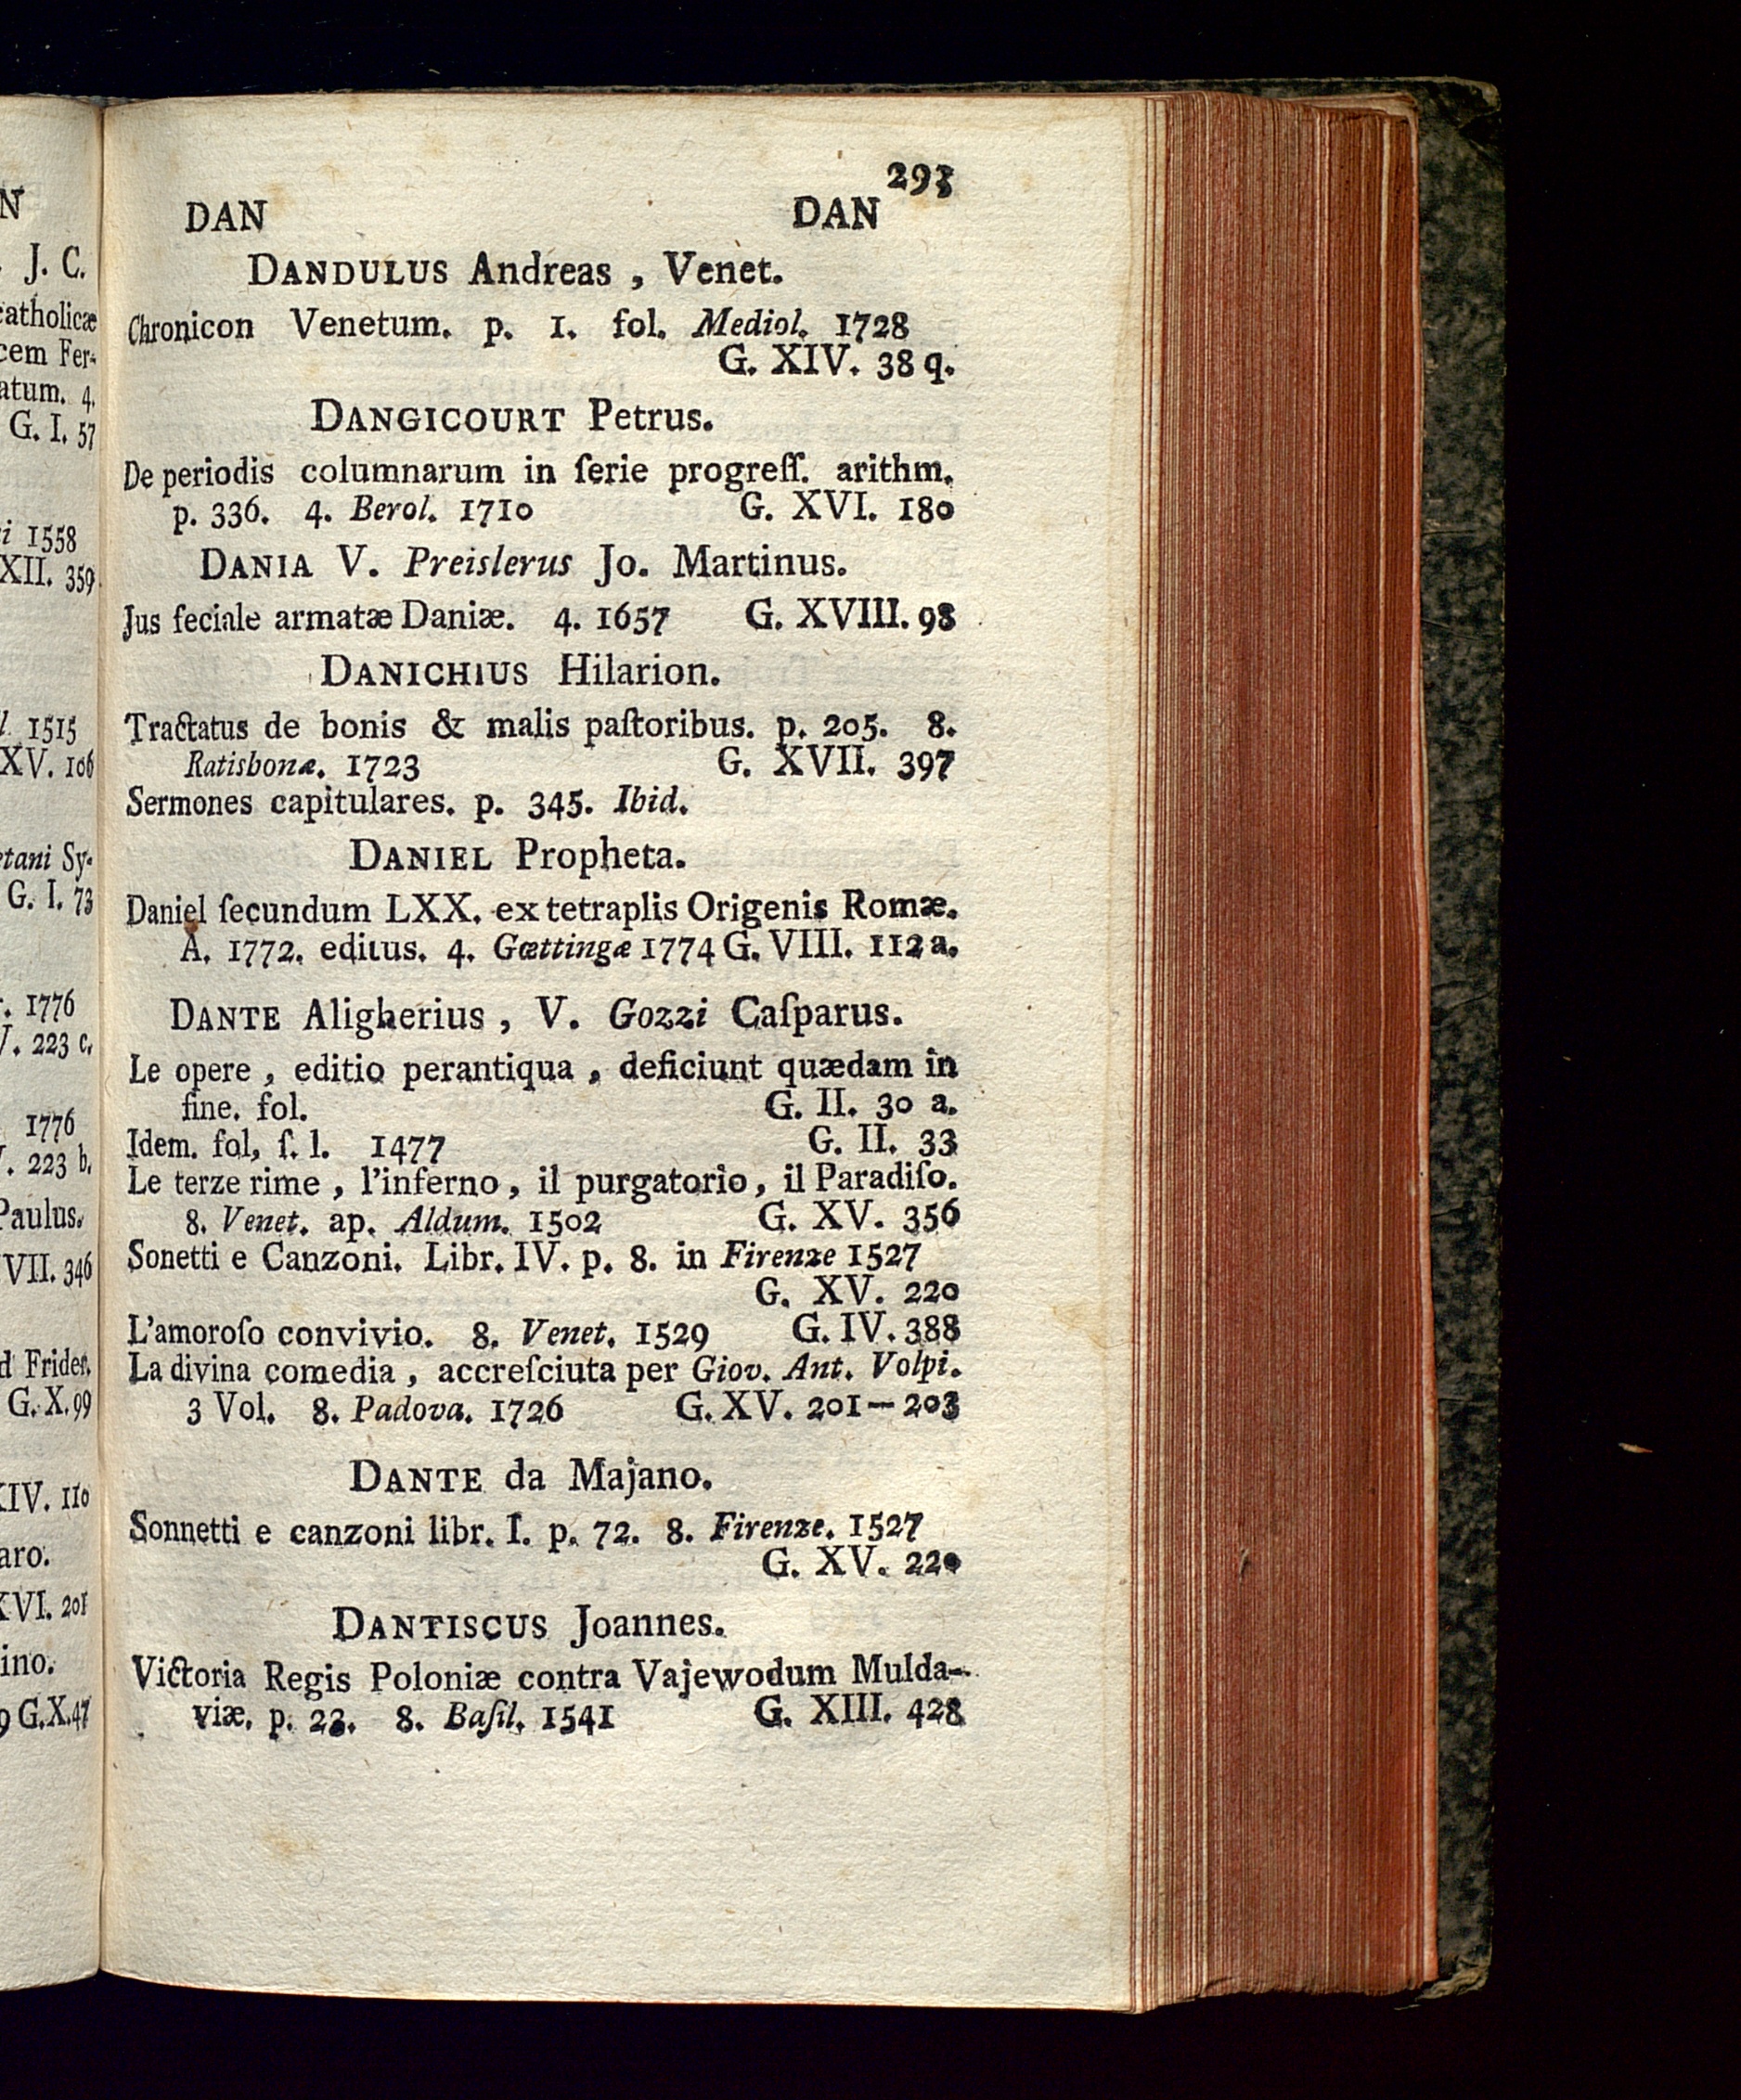 N
J. C.
catholicæ
cem Fer-
atum. 4.
G. I. 57
i 1558
XII. 359
l 1515
XV. 106
etani Sy-
G. I. 73
. 1776
V. 223 c.
1776
. 223 b.
Paulus.
VII. 346
d Frider.
G. X. 99
XIV. 110
aro.
XVI. 201
ino.
9 G.X.47
293
DAN DAN
DANDULUS Andreas , Venet.
Chronicon Venetum. p. 1. fol. Mediol. 1728
G. XIV. 38 q.
DANGICOURT Petrus.
De periodis columnarum in ſerie progreſſ. arithm.
p. 336. 4. Berol. 1710 G. XVI. 180
DANIA V. Preislerus Jo. Martinus.
Jus feciale armatæ Daniæ. 4. 1657 G. XVIII. 98
DANICHIUS Hilarion.
Tractatus de bonis & malis paſtoribus. p. 205. 8.
Ratisbonæ. 1723 G. XVII. 397
Sermones capitulares. p. 345. Ibid.
DANIEL Propheta.
Daniel ſecundum LXX. ex tetraplis Origenis Romæ.
A. 1772. editus. 4. Gœttingæ 1774 G. VIII. 112 a.
DANTE Aligherius , V. Gozzi Caſparus.
Le opere , editio perantiqua , deficiunt quædam in
fine. fol. G. II. 30 a.
Idem. fol, ſ. l. 1477 G. II. 33
Le terze rime , l'inferno , il purgatorio , il Paradiſo.
8. Venet. ap. Aldum. 1502 G. XV. 356
Sonetti e Canzoni. Libr. IV. p. 8. in Firenze 1527
G. XV. 220
L'amoroſo convivio. 8. Venet. 1529 G. IV. 388
La divina comedia , accreſciuta per Giov. Ant. Volpi.
3 Vol. 8. Padova. 1726 G. XV. 201—203
DANTE da Majano.
Sonnetti e canzoni libr. I. p. 72. 8. Firenze. 1527
G. XV. 220
DANTISCUS Joannes.
Victoria Regis Poloniæ contra Vajewodum Mulda-
viæ. p. 23. 8. Baſil. 1541 G. XIII. 428